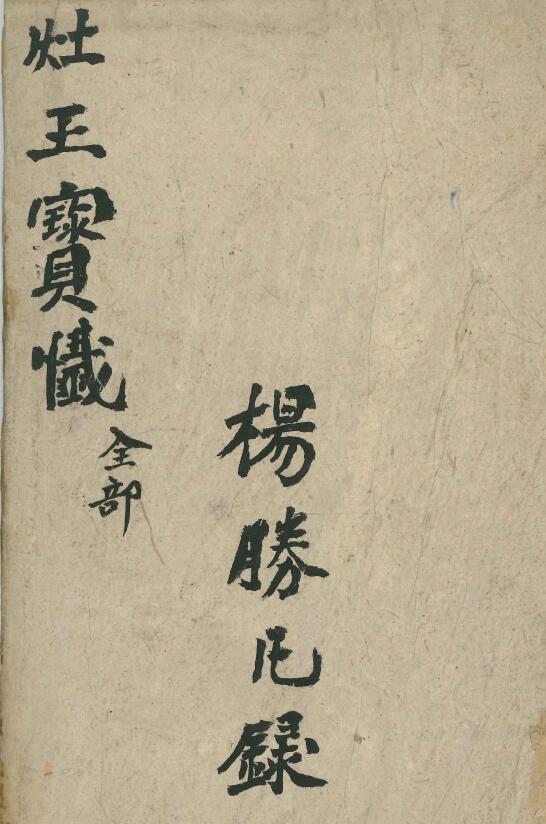 灶王寶懺全部
楊勝錄